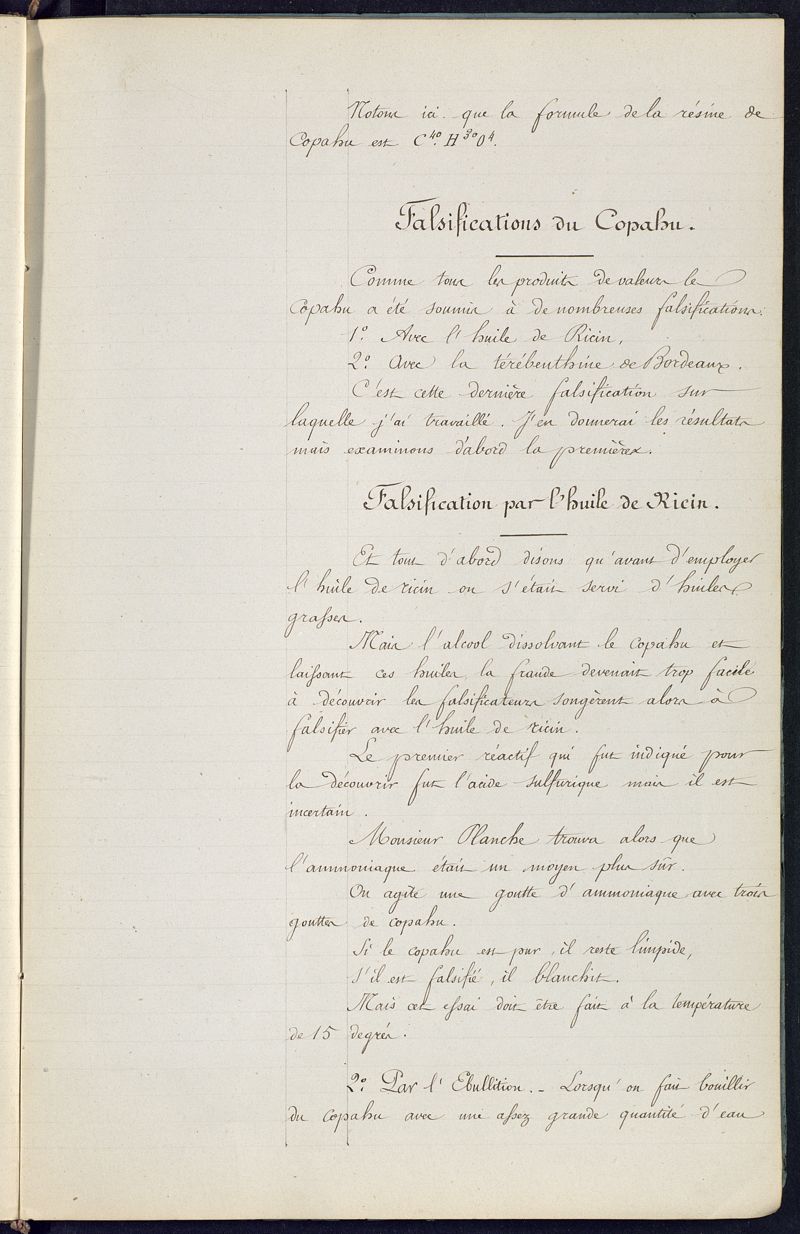 Notons ici que la formule de la résine de
Copahu est C⁴⁰. H³⁰ O⁴.
Falsifications du Copahu.
Comme tous les produits de valeurs le
Copahu a été soumis à de nombreuses falsifications:
1º. Avec l'huile de Ricin,
2º. avec la térébenthine de Bordeaux.
C'est cette dernière falsification sur
laquelle j'ai travaillé. J'en donnerai les résultats
mais examinons d'abord la première.
Falsification par l'huile de Ricin.
Et tout d'abord disons qu'avant d'employer
l'huile de ricin on s'était servi d'huiles
grasses.
Mais l'alcool dissolvant le copahu et
laissant ces huiles la fraude devenait trop facile
à découvrir les falsificateurs songèrent alors à
falsifier avec l'huile de ricin.
Le premier réactif qui fut indiqué pour
la découvrir fut l'acide sulfurique mais il est
incertain.
Monsieur Planche trouva alors que
l'ammoniaque était un moyen plus sûr.
On agite une goutte d'ammoniaque avec trois
gouttes de copahu.
Si le copahu est pur, il reste limpide,
s'il est falsifié, il blanchit.
Mais cet essai doit être fait à la température
de 15 degrés.
2º. Par l'Ebullition. - Lorsqu'on fait bouillir
du copahu avec une assez grande quantité d'eau